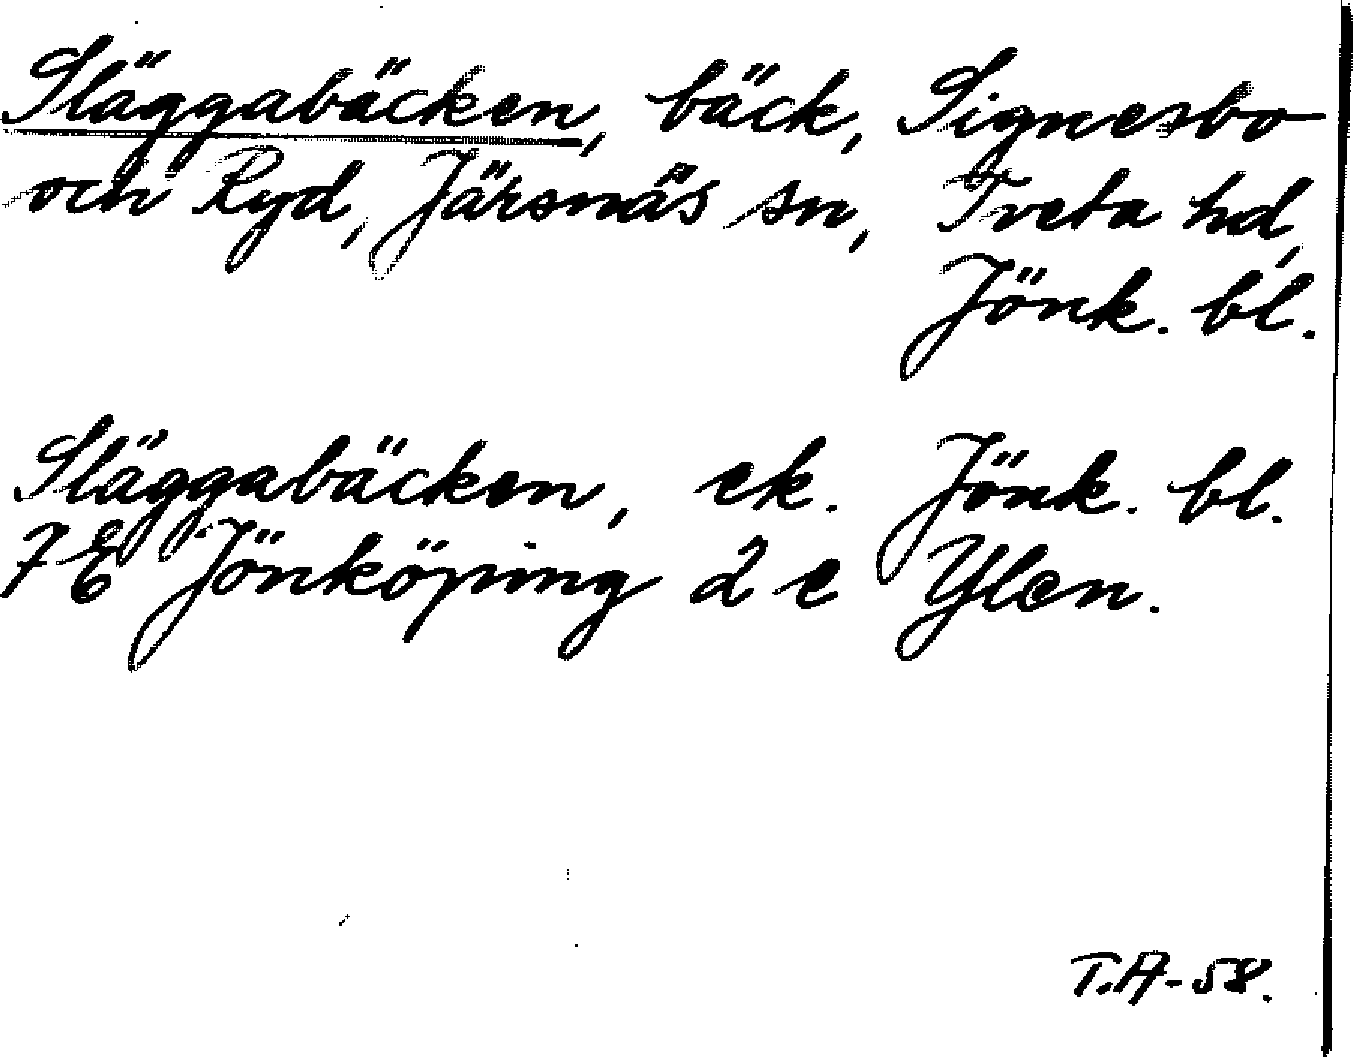 Släggabäcken, bäck, Signesbo
och Ryd, Järsnäs sn, Tveta hd,
Jönk. bl.
Släggabäcken, ek. Jönk. bl.
7E Jönköping 2 e Ylen.
T.A-58.